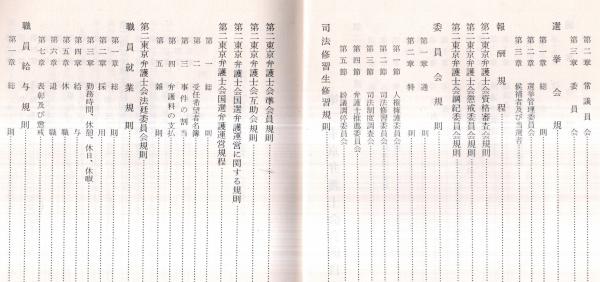 第二章 常議員会
第三章 委員会
選挙会規
第一章 総則
第二章 選挙管理委員会
第三章 候補者及び当選者
報酬規程
第二東京弁護士会資格審査会規則
第二東京弁護士会懲戒委員会規則
第二東京弁護士会綱紀委員会規則
委員会規則
第一章 通則
第二章 特則
第一節 人権擁護委員会
第二節 司法修習委員会
第三節 司法制度調査会
第四節 弁護士推薦委員会
第五節 紛議調停委員会
司法修習生修習規則
第二東京弁護士会準会員規則
第二東京弁護士会互助会規則
第二東京弁護士会国選弁護運営に関する規則
第二東京弁護士会国選弁護運営規程
第一 総則
第二 受任希望者名簿
第三 事件の割当
第四 弁護料の支払
第五 雑則
第二東京弁護士会法廷委員会規則
職員就業規則
第一章 総則
第二章 採用
第三章 勤務時間、休憩、休日、休暇
第四章 給与
第五章 休職
第六章 退職
第七章 表彰及び懲戒
職員給与規則
第一章 総則